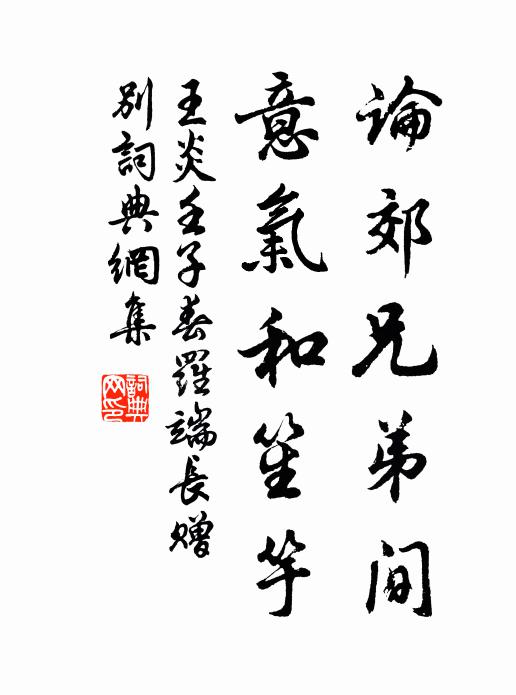 論郊兄弟間
意氣和笙竽
王炎壬子春羅端長贈
別詞典網集
詞典
网印